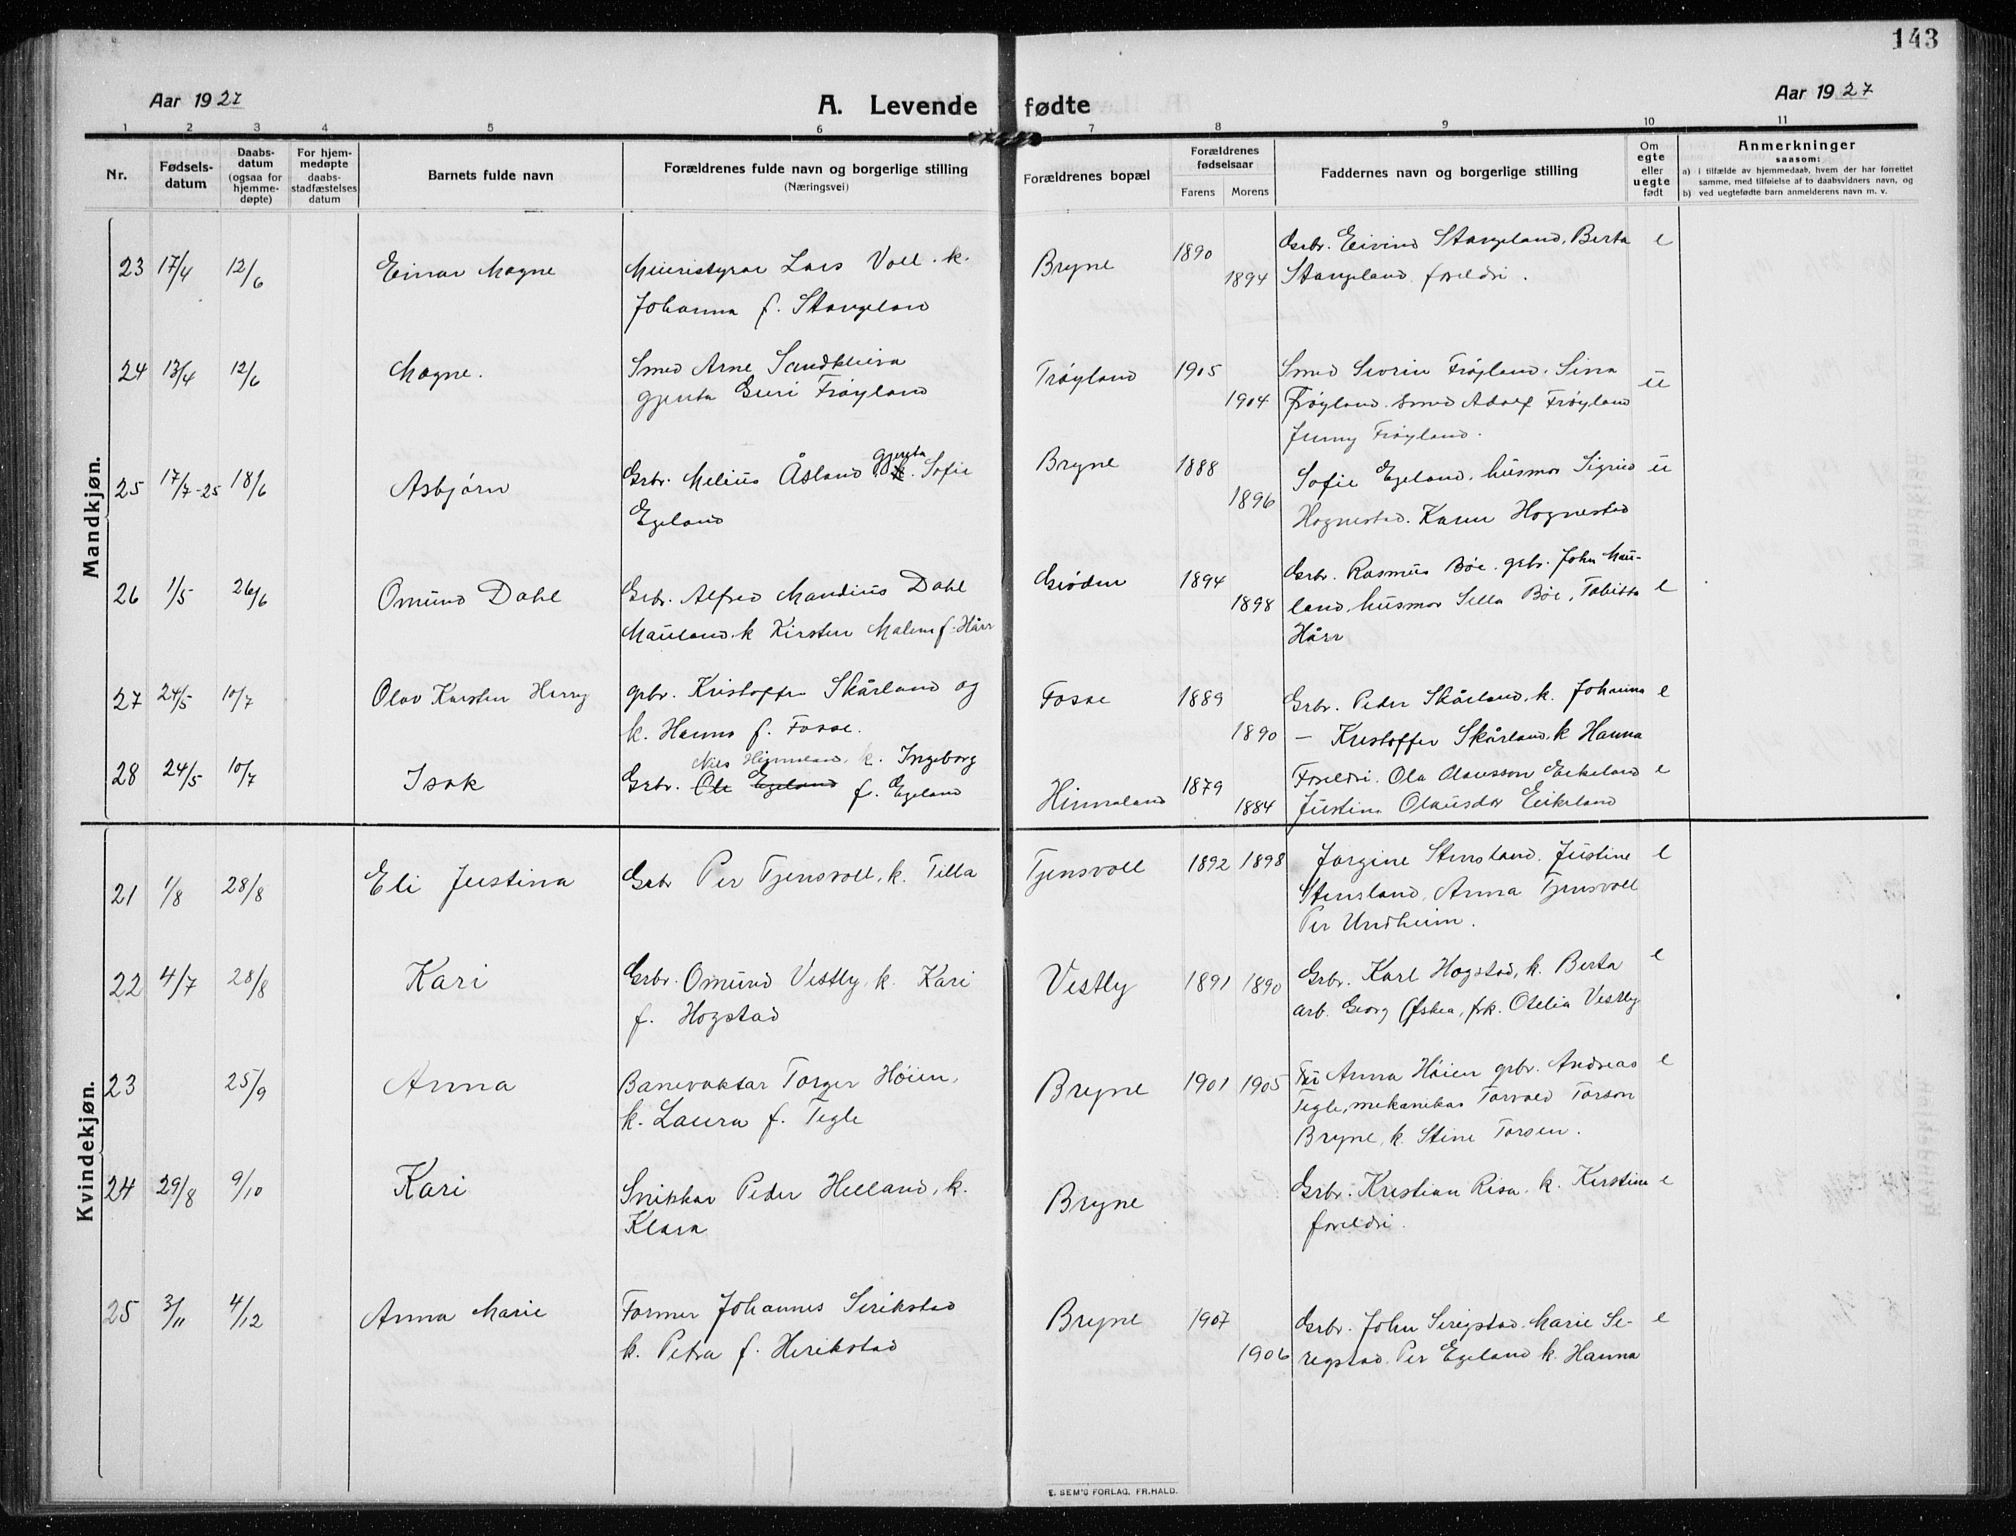 143
Aar 1927
A. Levende fødte
Aar 1927
1 2 3 4 5 6 7 8 9 10 11
Nr.
Fødselsdatum
Daabsdatum (ogsaa for hjemmedøpte)
For hjemmedøpte daabsstadfæstelses datum
Barnets fulde navn
Forældrenes fulde navn og borgerlige stilling
(Næringsvei)
Forældrenes bopæl
Forældrenes fødselsaar
Farens Morens
Faddernes navn og borgerlige stilling
Om egte eller uegte født
Anmerkninger
saasom:
a) i tilfælde av hjemmedaab, hvem der har forrettet samme, med tilføielse af to daabsvidners navn, og
b) ved uegtefødte barn anmelderens navn m. v.
Mandkjøn.
23 17/4 12/6 Einar Magne Meieristyrar Lars Voll. k. Bryne 1890 Grbr. Eivind Stangeland, Berta e
Johanna f. Stangeland 1894 Stangeland foreldri.
24 13/4 12/6 Magne. Smed Arne Sandkleiva Frøyland 1905 Smed Sivrin Frøyland. Sina u
gjenta Guri Frøyland 1904 Frøyland. Smed Adolf Frøyland
Jenny Frøyland.
25 17/7-25 18/6 Asbjørn Grbr. Melius Åsland gjenta k. Sofie Bryne 1888 Sofie Egeland, husmor Sigrid u
Egeland 1896 Hognestad. Karen Hognestad
26 1/5 26/6 Omund Dahl Grbr. Alfred Mandius Dahl Grøden 1894 Grbr. Rasmus Bøe. grbr. John Mau-
Mauland. k Kirsten Malene f. Hårr 1898 land, husmor Sella Bøe, Tabitta e
Hårr
27 24/5 10/7 Olav Karsten Henry grbr. Kristoffer Skårland og Fosse 1889 Grbr. Peder Skårland, k. Johanna e
k. Hanna f. Fosse. 1890 — Kristoffer Skårland, k Hanna
28 24/5 10/7 Isak Nils Hinnaland, k. Ingeborg
Grbr. Ole Egeland f. Egeland Hinnaland 1879 1884 Foreldri. Ola Olausson Eikeland e
Justina Olausdor Eikeland
Kvindekjøn.
21 1/8 28/8 Eli Justina Grbr Per Tjensvoll, k. Tilla Tjensvoll 1892 1898 Jorgine Stensland, Justine e
Stensland, Anna Tjensvoll
Per Undheim.
22 4/7 28/8 Kari Grbr. Omund Vestly, k. Kari Vestly 1891 1890 Grbr. Karl Hogstad, k. Berta e
f. Hogstad arb. Georg frk. Otelia Vestly
23 25/9 Anna Banevaktar Torger Høien, Bryne 1901 1905 Fru Anna Høien grbr. Andreas e
k. Laura f. Tegle Tegle, mekanikar Torvald Torson
Bryne, k. Stine Torsen.
24 29/8 9/10 Kari Snikkar Peder Helland, k. Bryne Grbr. Kristian Risa, k. Kirstine e
Klara foreldri.
25 3/11 4/12 Anna Marie Former Johannes Serikstad Bryne 1907 Grbr. John Serigstad. Marie Se- e
k. Petra f. Herikstad 1906 regstad. Per Egeland k. Hanna
E. SEM'S FORLAG, FR.HALD.